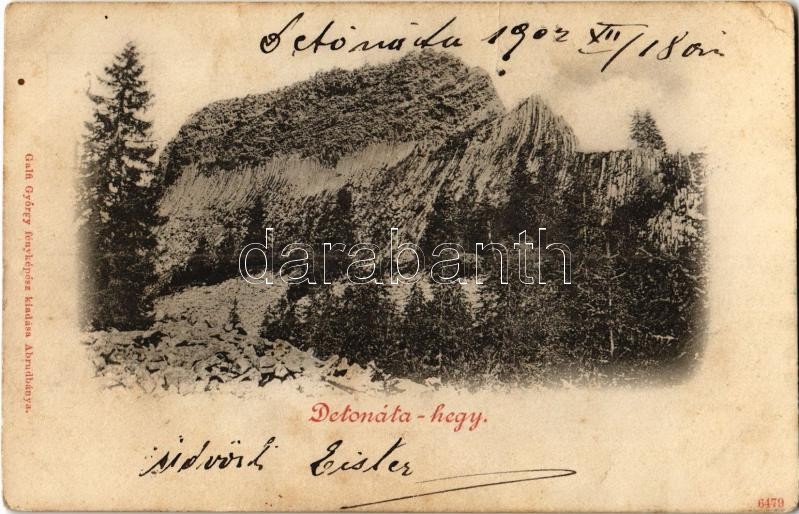 Detonáta 1902 XII/18án
Galfi György fényképész kiadása Abrudbánya.
darabanth
Detonáta-hegy.
üdvözli Eister
6479